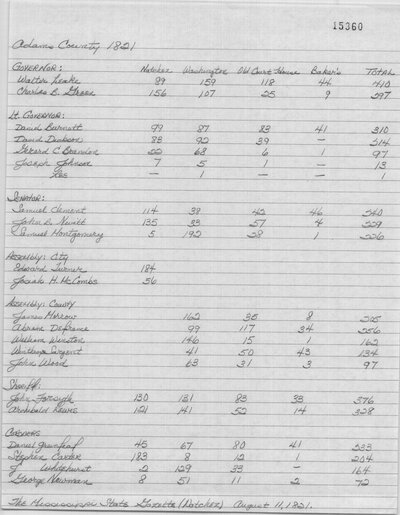 15360
Adams County 1821
GOVERNOR: Natchez Washington Old Court House Baker's TOTAL
Walter Leake 89 159 118 44 410
Charles B. Green 156 107 25 9 297
Lt. Governor:
David Burnett 99 87 83 41 310
David Dickson 88 92 39 — 214
Gerard C. Brandon 22 68 6 1 97
Joseph Johnson 7 5 1 — 13
— 1 — — 1
Senator:
Samuel Clement 114 38 42 46 240
John B. Nevitt 135 33 57 4 229
Samuel Montgomery 5 192 28 1 226
Assembly: City
Edward Turner 184
Josiah H. McCombs 56
Assembly: County
James 162 35 8 205
Abram Defrance 99 117 34 256
William Winston 146 15 1 162
Winthrop Sargent 41 50 43 134
John Wood 63 31 3 97
Sheriff:
John Forsyth 130 131 83 33 376
Archibald Lewis 121 141 52 14 328
Coroners
Daniel Greenleaf 45 67 80 41 233
Stephen Carter 183 8 12 1 204
J Windhurst 2 129 33 — 164
George Newman 8 51 11 2 72
The Mississippi State Gazette (Natchez) August 11, 1821.